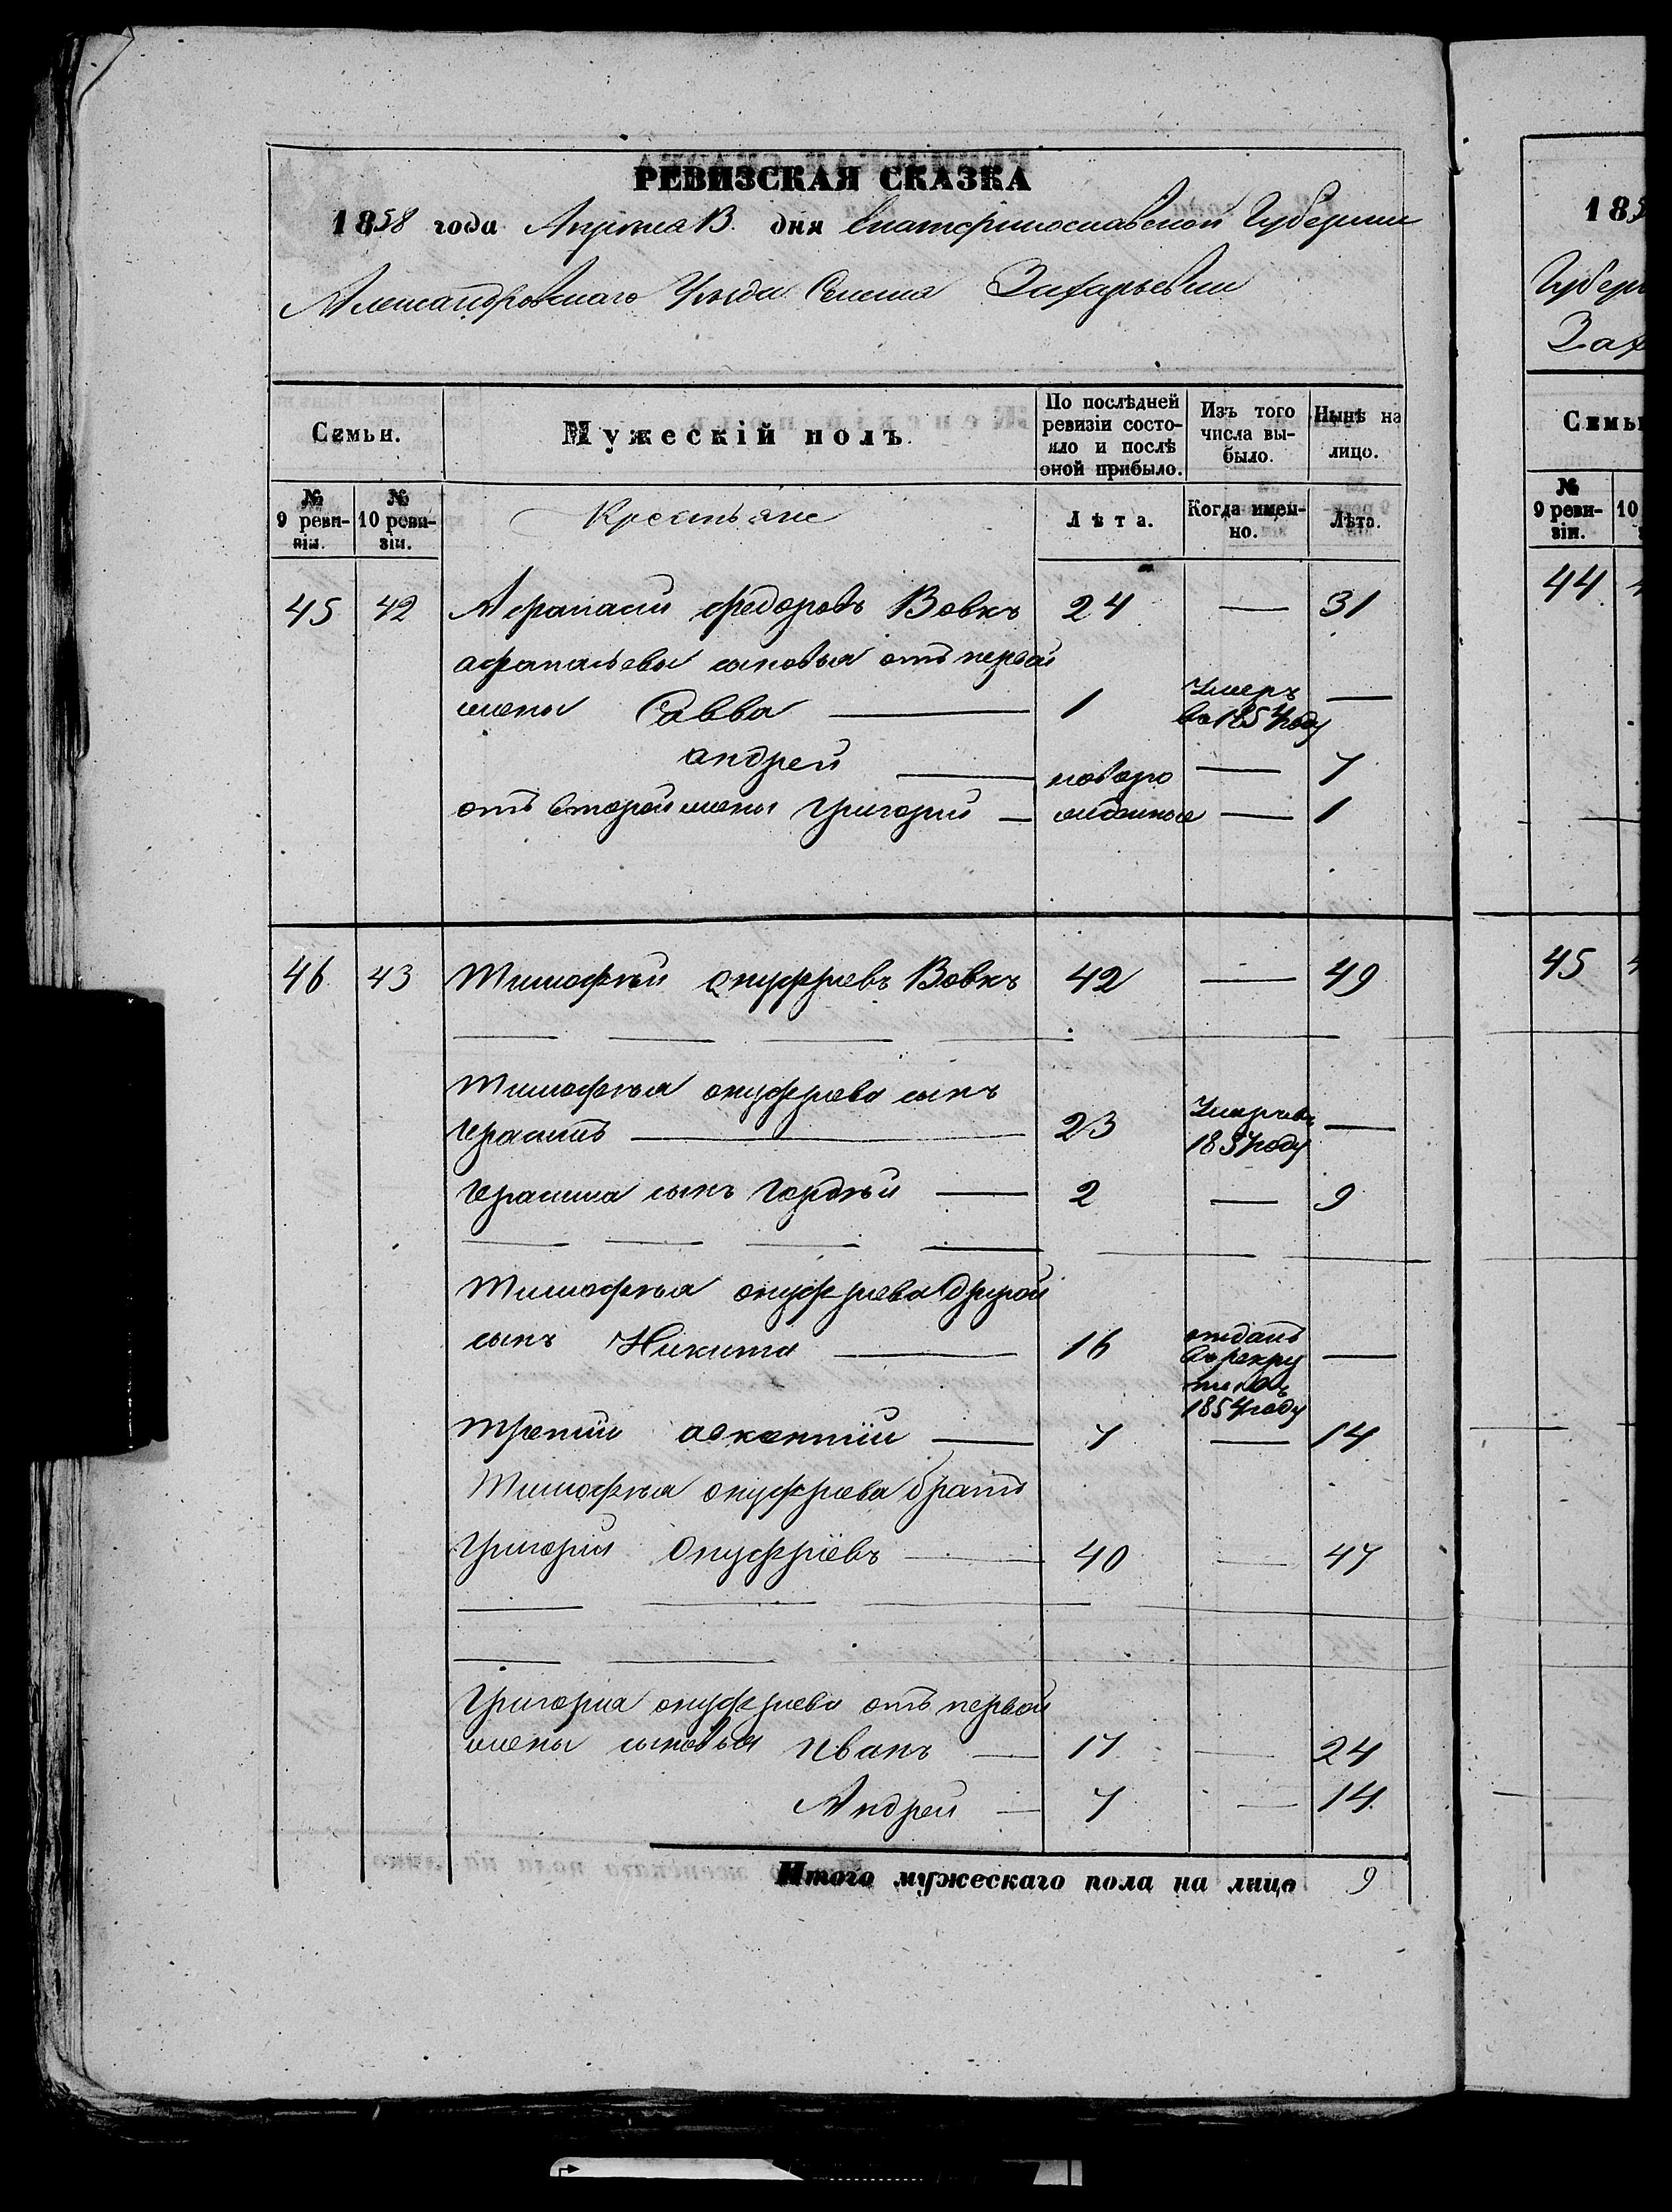 РЕВИЗСКАЯ СКАЗКА
1858 года Апреля В. дня Екатеринославской Губернии
Александровскаго Уезда Селения Захарьевки
Семьи.
Мужескій полъ.
По послѣдней ревизіи состояло и послѣ оной прибыло.
Изъ того числа выбыло.
Нынѣ на лицо.
№ 9 ревизіи.
№ 10 ревизіи.
Крестьяне
Лѣта.
Когда именно.
Лѣта.
45 42 Афанасий Федоровъ Вовкъ 24 — 31
афанасьевы сыновья отъ первой
жены Савва — 1 Умеръ въ 1854 году —
андрей — новоро — 7
отъ второй жены Григорий — жденные — 1
46 43 Тимофѣй онуфріевъ Вовкъ 42 — 49
Тимофѣя онуфріева сынъ
Герасимъ — 23 Умеръ въ 1857 году —
Герасима сынъ Гордѣй — 2 — 9
Тимофѣя онуфріева другой
сынъ Никита — 16 отданъ въ рекруты въ 1854 году —
третий авксентій — 7 — 14
Тимофѣя онуфріева братъ
Григорий Онуфріевъ — 40 — 47
Григория онуфріева отъ первой
жены сыновья Иванъ — 17 — 24
Андрей — 7 — 14
Итого мужескаго пола на лицо 9
185
Губерн
Зах
Семьи
№ 9 ревизіи.
10
44
45